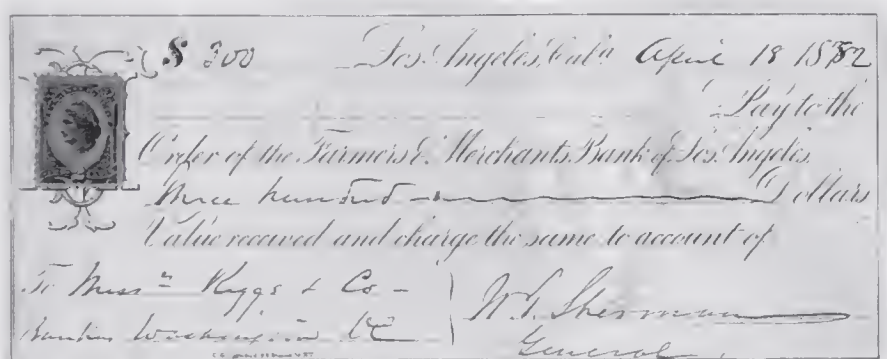 $ 300 Los Angeles, Cal'a April 18 1882
Pay to the
Order of the Farmers & Merchants Bank of Los Angeles
Three hundred Dollars
Value received and charge the same to account of
To Mess rs Riggs & Co - W. T. Sherman
Bankers Washington DC General